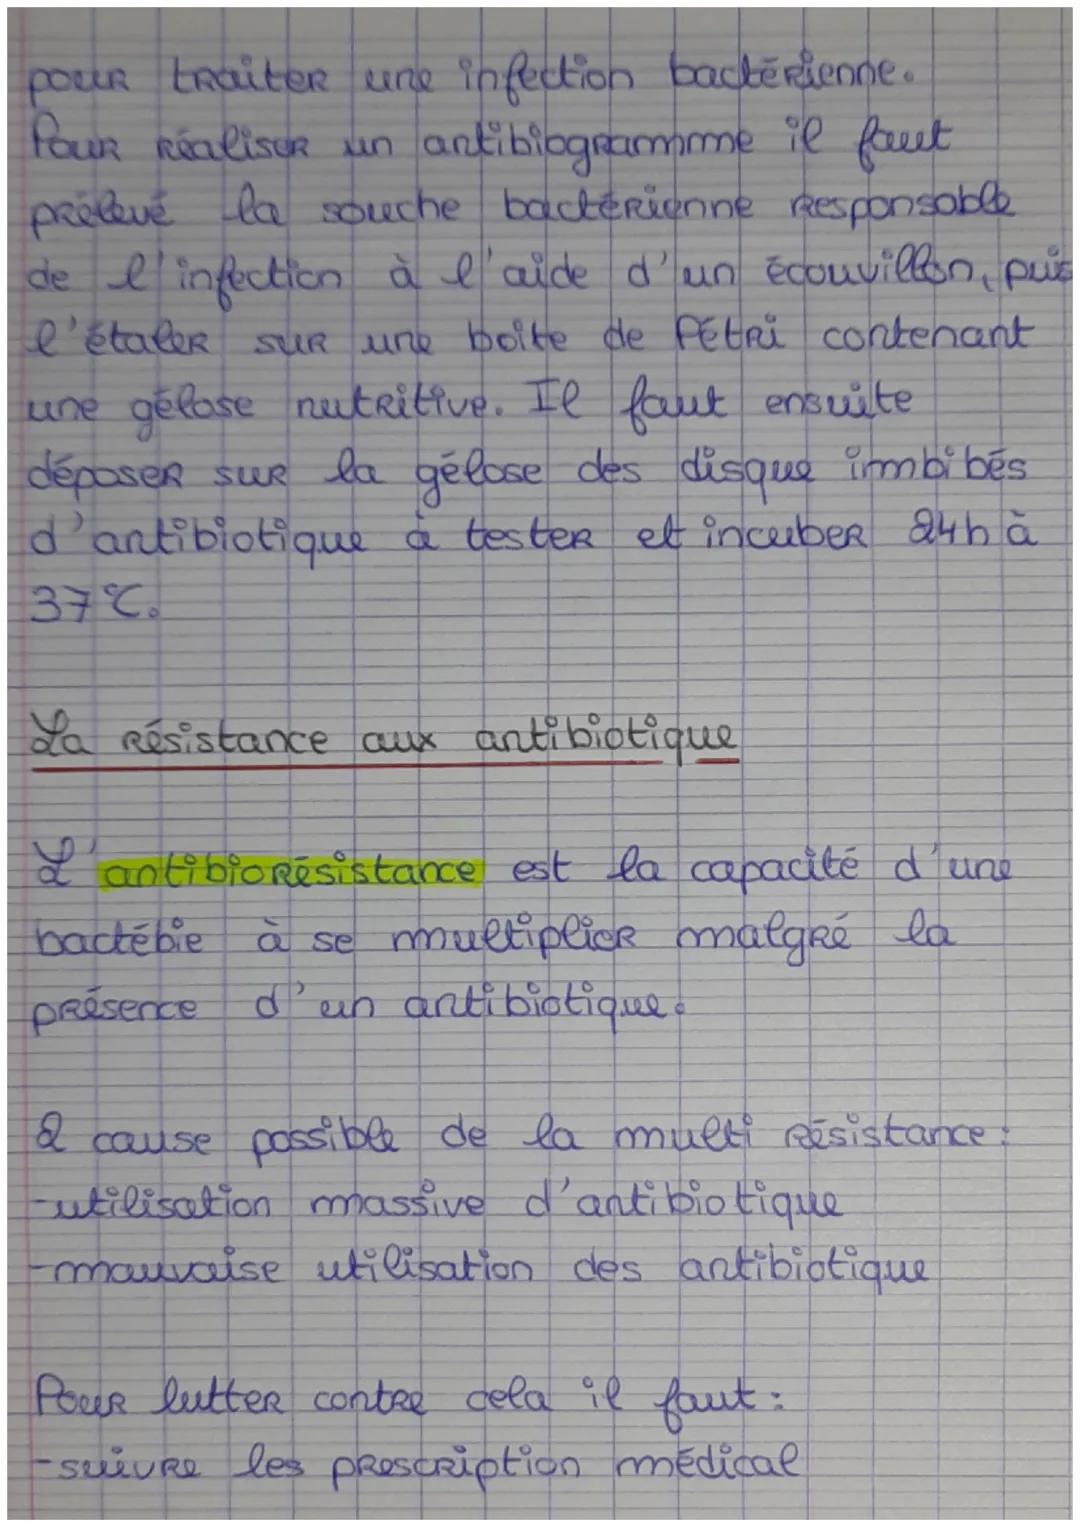 pour traiter une infection bactérienne.
Pour réaliser un antibiogramme il faut
prélevé la souche bactérienne responsable
de l'infection à l'aide d'un écouvillon, puis
l'étaler sur une boite de Pétri contenant
une gélose nutritive. Il faut ensuite
déposer sur la gélose des disque imbibés
d'antibiotique à tester et incuber 24h à
37°C.
La résistance aux antibiotique
L'antibiorésistance est la capacité d'une
bactébie à se multiplier malgré la
présence d'un antibiotique.
2 cause possible de la multi résistance :
-utilisation massive d'antibiotique
-mauvaise utilisation des antibiotique
Pour lutter contre cela il faut :
-suivre les prescription médical